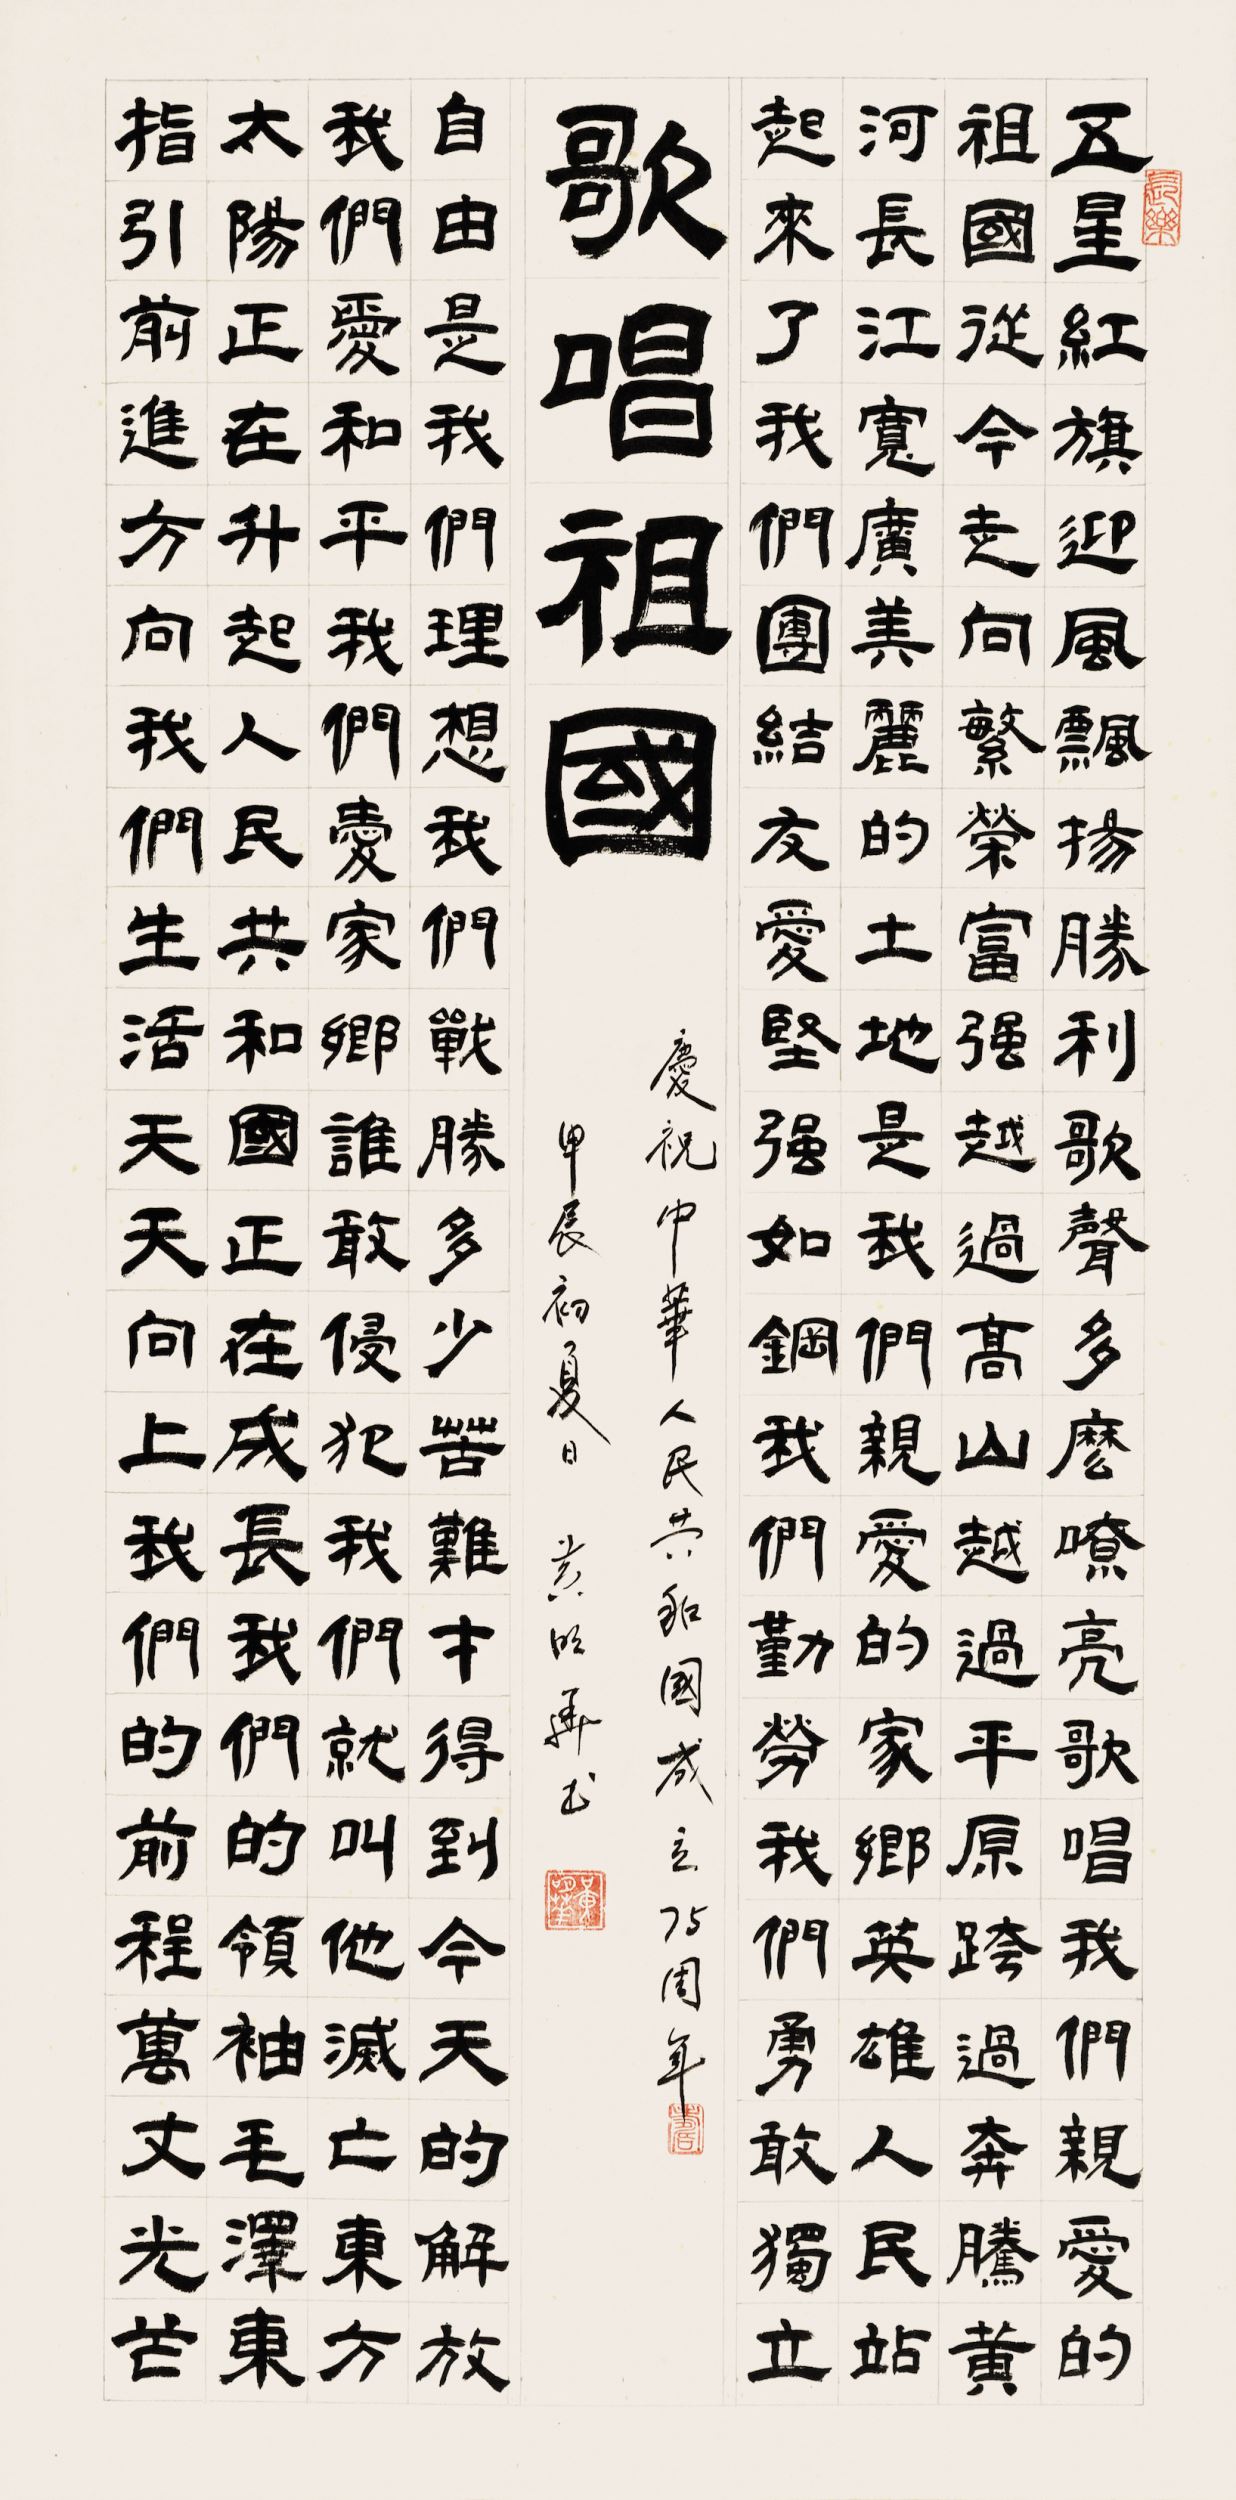 五星紅旗迎風飄揚勝利歌聲多麼嘹亮歌唱我們親愛的
祖國從今走向繁榮富强越過高山越過平原跨過奔騰黄
河長江寬廣美麗的土地是我們親愛的家鄉英雄人民站
起來了我們團結友愛堅强如鋼我們勤勞我們勇敢獨立
歌唱祖國
慶祝中華人民共和國成立75周年
甲辰初夏日 黄昭華書
自由是我們理想我們戰勝多少苦難才得到今天的解放
我們愛和平我們愛家鄉誰敢侵犯我們就叫他滅亡東方
太陽正在升起人民共和國正在成長我們的領袖毛澤東
指引前進方向我們生活天天向上我們的前程萬丈光芒
長樂